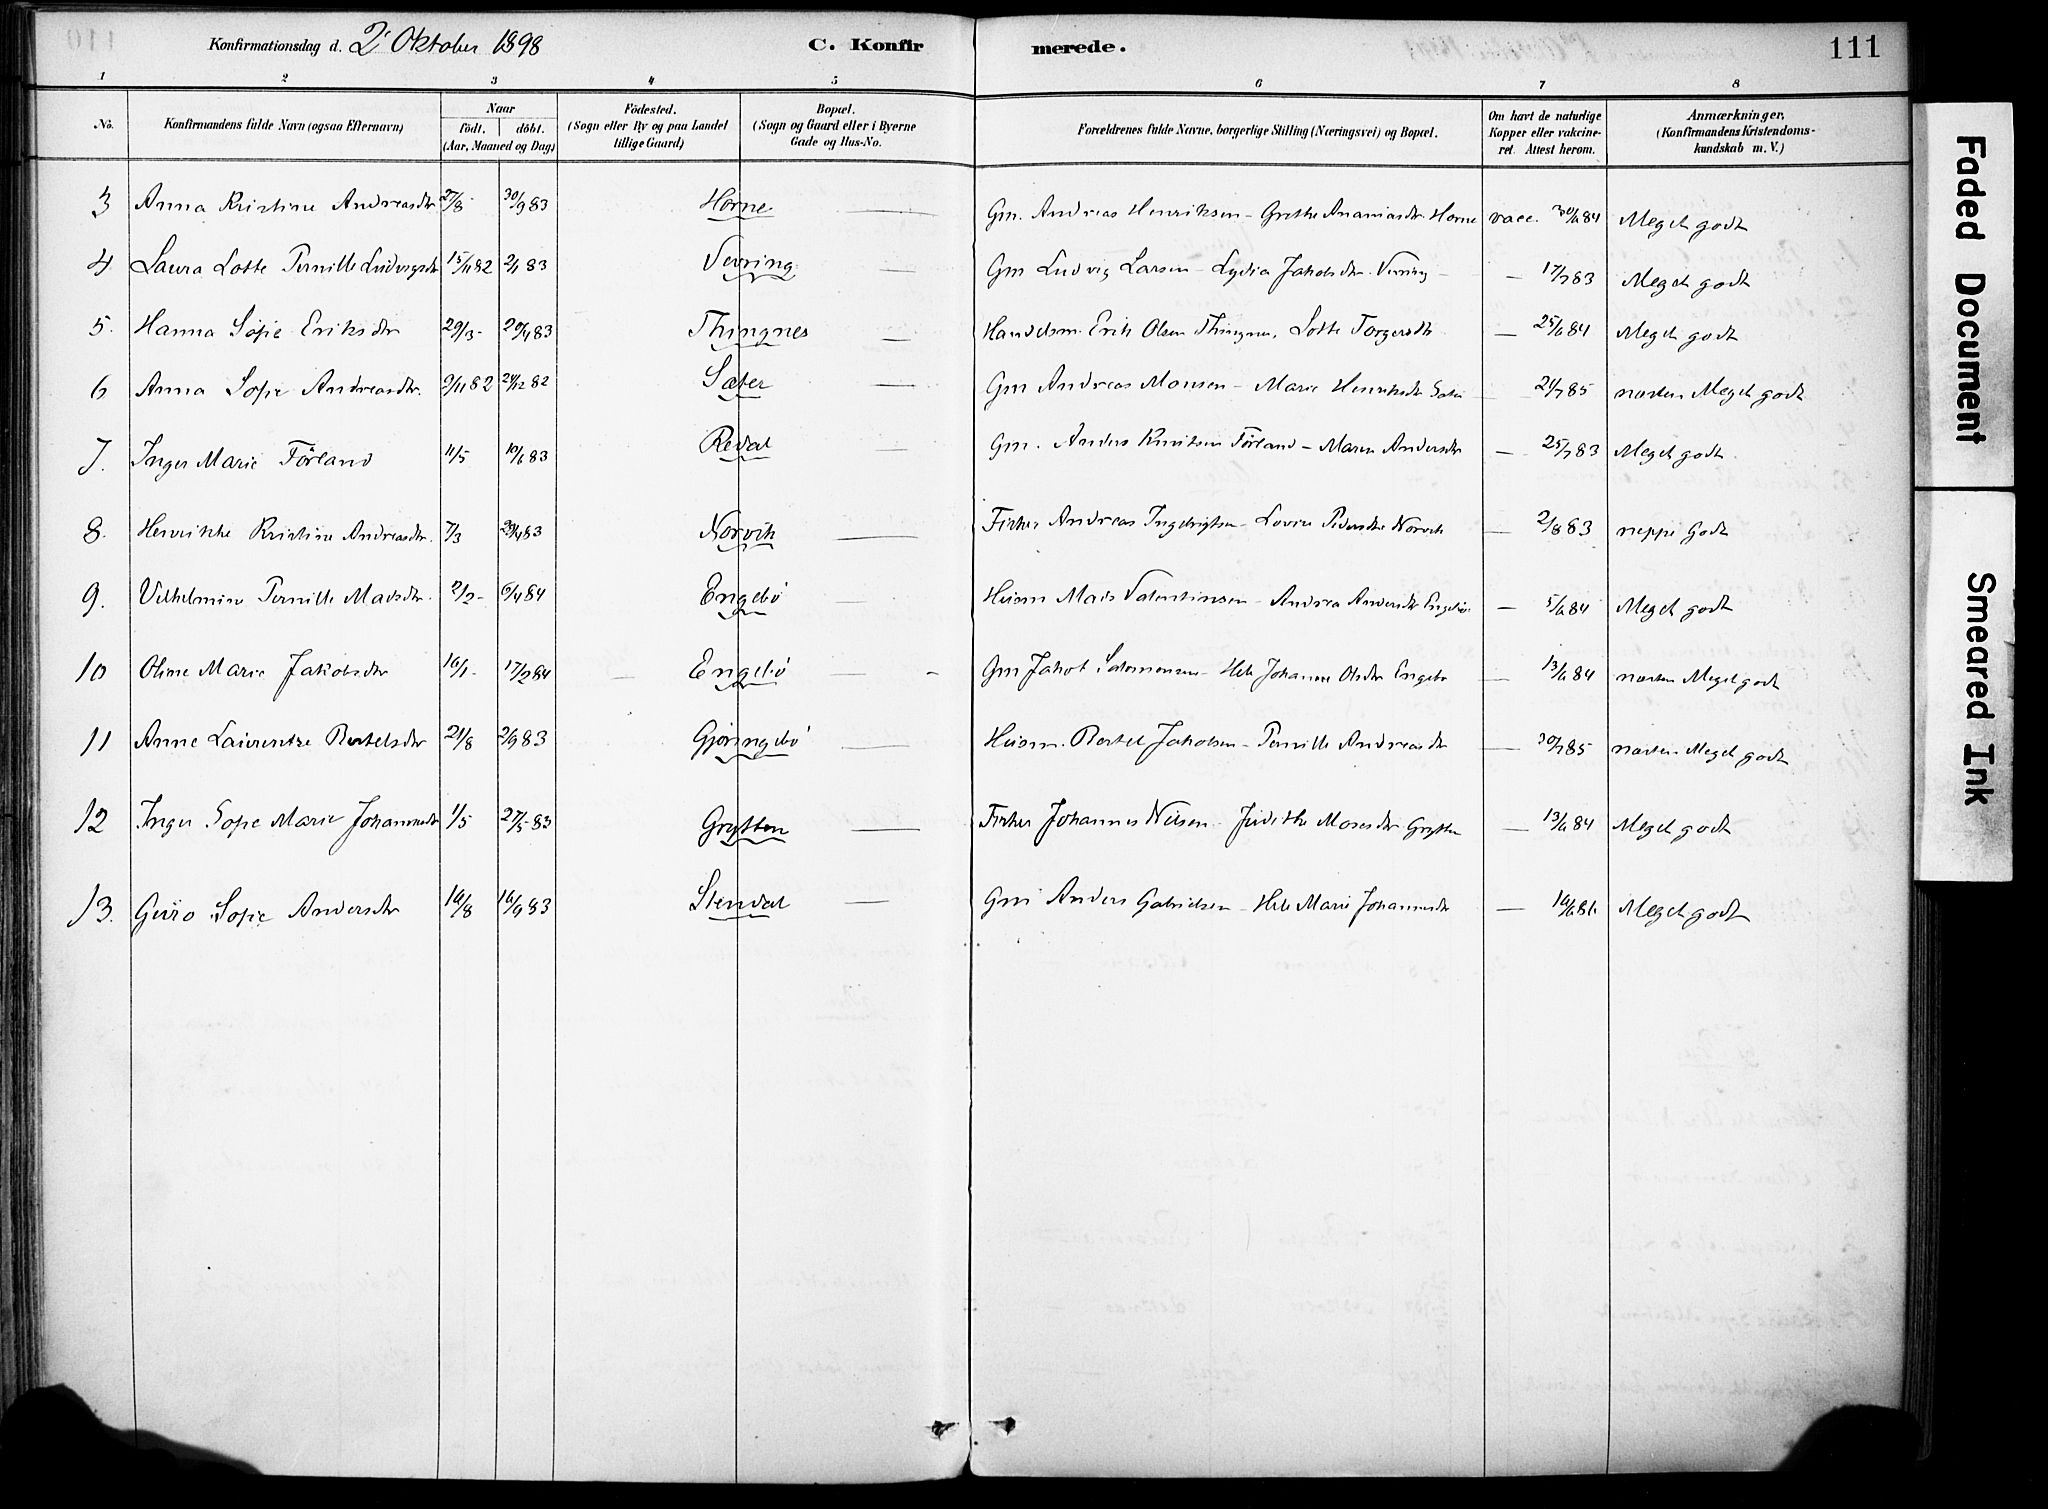 Konfirmationsdag d. 2 Oktober 1898 C. Konfirmerede. 111
1 2 3 4 5 6 7 8
No. Konfirmandens fulde Navn (ogsaa Efternavn) Naar födt. döbt. (Aar, Maaned og Dag) Födested. (Sogn eller By og paa Landet tillige Gaard) Bopæl. (Sogn og Gaard eller i Byerne Gade og Hus-No. Forældrenes fulde Navne, borgerlige Stilling (Næringsvei) og Bopæl. Om havt de naturlige Kopper eller vakcineret. Attest herom. Anmærkninger, (Konfirmandens Kristendomskundskab m. V.)
3 Anna Kristine Andreasdtr 27/8 30/983 Horne — Gm. Andreas Henriksen - Grethe Ananiasdtr Horne vacc. 30/684 Meget godt
4 Laura Lotte Pernille Ludvigsdtr 15/1182 2/183 Vevring — Gm Ludvig Larsen - Lydia Jakobsdtr Vevring — 17/783 Meget godt
5. Hanna Sofie Eriksdtr 29/3- 29/483 Thingnes — Handelsm. Erik Olsen Thingnes, Lotte Torgersdtr — 25/684 Meget godt
6 Anna Sofie Andreasdtr. 9/1182 24/1282 Sæter — Gm Andreas Monsen - Marie Henriksdtr Sæter — 21/785 næsten Meget godt
7. Inger Marie Förland 11/5 10/683 Redal — Gm. Anders Knutsen Förland - Maren Andersdtr — 25/783 Meget godt
8. Henrikke Kristine Andreasdtr. 7/3 29/483 Norvik — Fisker Andreas Ingebrigtsen - Lovise Pedersdtr Norvik — 2/883 neppe Godt
9. Vilhelmine Pernille Madsdtr. 2/2- 6/484 Engebö — Husm Mads Valentinsen - Andrea Andersdtr Engebö — 5/684 Meget godt
10 Oline Marie Jakobsdtr 16/1- 17/284 — Engebö — Gm Jakob Salomonsen - Helle Johanne Olsdtr Engebö — 13/684 næsten Meget godt
11 Anne Laurentze Bertelsdtr 21/8 2/983 Gjöringebö — Husm. Bertel Jakobsen - Pernille Andreasdtr — 30/785 næsten Meget godt
12 Inger Sofie Marie Johannesdtr 1/5 27/583 Grytten — Fisker Johannes Nilsen - Judithe Mosesdtr Grytten — 13/684 Meget godt
13. Guro Sofie Andersdtr 16/8 16/983 Stendal — Gm Anders Gabrielsen - Helle Marie Johannesdtr — Meget godt
Faded Document
Smeared Ink